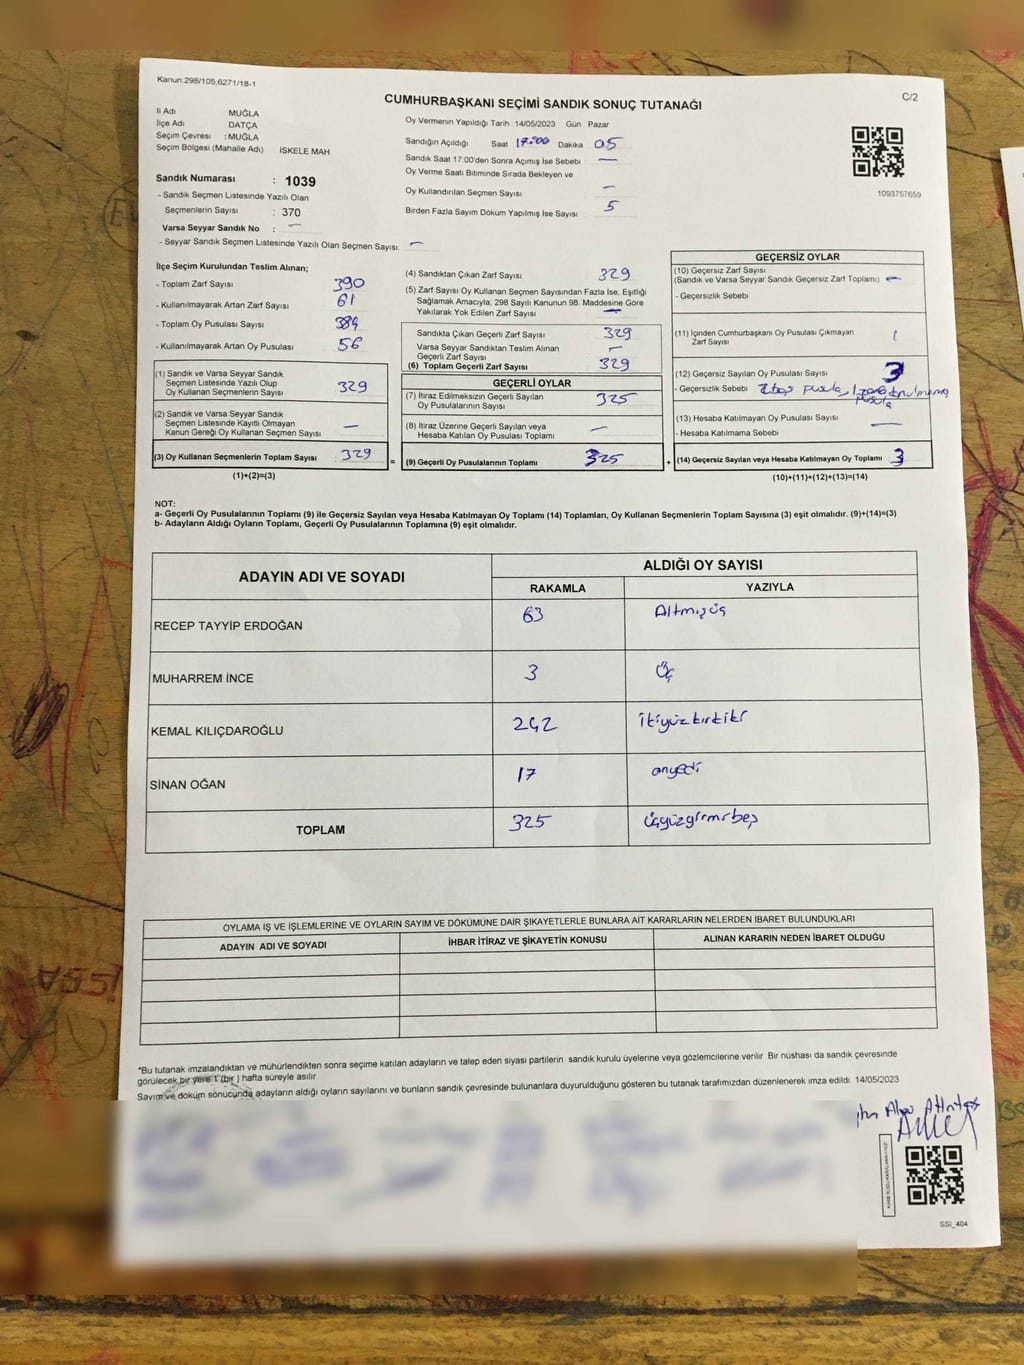 Kanun:298/105,6271/18-1
C/2
CUMHURBAŞKANI SEÇİMİ SANDIK SONUÇ TUTANAĞI
İl Adı MUĞLA
İlçe Adı DATÇA
Seçim Çevresi :MUĞLA
Seçim Bölgesi (Mahalle Adı) İSKELE MAH
Oy Vermenin Yapıldığı Tarih : 14/05/2023 Gün Pazar
Sandığın Açıldığı Saat 17:00 Dakika 05
Sandık Saat 17:00'den Sonra Açımış İse Sebebi —
Oy Verme Saati Bitiminde Sırada Bekleyen ve
Oy Kullandırılan Seçmen Sayısı —
Birden Fazla Sayım Döküm Yapılmış İse Sayısı 5
1093757659
Sandık Numarası : 1039
- Sandık Seçmen Listesinde Yazılı Olan
Seçmenlerin Sayısı : 370
Varsa Seyyar Sandık No : —
- Seyyar Sandık Seçmen Listesinde Yazılı Olan Seçmen Sayısı: —
İlçe Seçim Kurulundan Teslim Alınan;
- Toplam Zarf Sayısı 390
- Kullanılmayarak Artan Zarf Sayısı 61
- Toplam Oy Pusulası Sayısı 384
- Kullanılmayarak Artan Oy Pusulası 56
(1) Sandık ve Varsa Seyyar Sandık
Seçmen Listesinde Yazılı Olup
Oy Kullanan Seçmenlerin Sayısı 329
(2) Sandık ve Varsa Seyyar Sandık
Seçmen Listesinde Kayıtlı Olmayan
Kanun Gereği Oy Kullanan Seçmen Sayısı —
(3) Oy Kullanan Seçmenlerin Toplam Sayısı 329
(1)+(2)=(3)
=
(4) Sandıktan Çıkan Zarf Sayısı 329
(5) Zarf Sayısı Oy Kullanan Seçmen Sayısından Fazla İse, Eşitliği
Sağlamak Amacıyla, 298 Sayılı Kanunun 98. Maddesine Göre
Yakılarak Yok Edilen Zarf Sayısı —
Sandıkta Çıkan Geçerli Zarf Sayısı 329
Varsa Seyyar Sandıktan Teslim Alınan
Geçerli Zarf Sayısı —
(6) Toplam Geçerli Zarf Sayısı 329
GEÇERLİ OYLAR
(7) İtiraz Edilmeksizin Geçerli Sayılan
Oy Pusulalarının Sayısı 325
(8) İtiraz Üzerine Geçerli Sayılan veya
Hesaba Katılan Oy Pusulası Toplamı —
(9) Geçerli Oy Pusulalarının Toplamı 325
+
GEÇERSİZ OYLAR
(10) Geçersiz Zarf Sayısı
(Sandık ve Varsa Seyyar Sandık Geçersiz Zarf Toplamı) —
- Geçersizlik Sebebi
(11) İçinden Cumhurbaşkanı Oy Pusulası Çıkmayan
Zarf Sayısı 1
(12) Geçersiz Sayılan Oy Pusulası Sayısı 3
- Geçersizlik Sebebi 2 boş pusula,
pusula
(13) Hesaba Katılmayan Oy Pusulası Sayısı —
- Hesaba Katılmama Sebebi
(14) Geçersiz Sayılan veya Hesaba Katılmayan Oy Toplamı 3
(10)+(11)+(12)+(13)=(14)
NOT:
a- Geçerli Oy Pusulalarının Toplamı (9) ile Geçersiz Sayılan veya Hesaba Katılmayan Oy Toplamı (14) Toplamları, Oy Kullanan Seçmenlerin Toplam Sayısına (3) eşit olmalıdır. (9)+(14)=(3)
b- Adayların Aldığı Oyların Toplamı, Geçerli Oy Pusulalarının Toplamına (9) eşit olmalıdır.
ADAYIN ADI VE SOYADI
ALDIĞI OY SAYISI
RAKAMLA YAZIYLA
RECEP TAYYİP ERDOĞAN 63 Altmışüç
MUHARREM İNCE 3 Üç
KEMAL KILIÇDAROĞLU 242 ikiyüzkırkiki
SİNAN OĞAN 17 onyedi
TOPLAM 325 üçyüzyirmibeş
OYLAMA İŞ VE İŞLEMLERİNE VE OYLARIN SAYIM VE DÖKÜMÜNE DAİR ŞİKAYETLERLE BUNLARA AİT KARARLARIN NELERDEN İBARET BULUNDUKLARI
ADAYIN ADI VE SOYADI İHBAR İTİRAZ VE ŞİKAYETİN KONUSU ALINAN KARARIN NEDEN İBARET OLDUĞU
*Bu tutanak imzalandıktan ve mühürlendikten sonra seçime katılan adayların ve talep eden siyasi partilerin sandık kurulu üyelerine veya gözlemcilerine verilir. Bir nüshası da sandık çevresinde
görülecek bir yere 1 (bir ) hafta süreyle asılır
Sayım ve döküm sonucunda adayların aldığı oyların sayılarını ve bunların sandık çevresinde bulunanlara duyurulduğunu gösteren bu tutanak tarafımızdan düzenlenerek imza edildi 14/05/2023
SSI_404